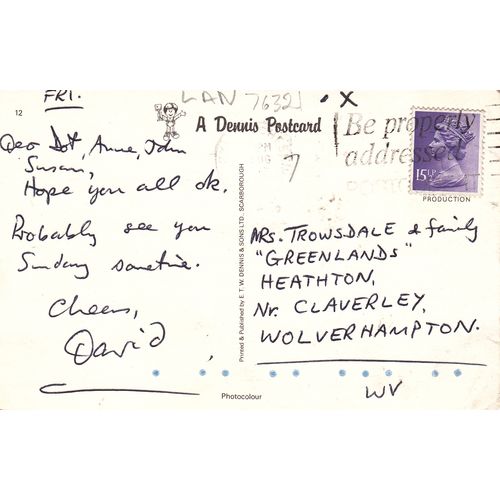 FRI.
LAN 76321 . X
12
A Dennis Postcard
Be properly
addressed
15½P
PRODUCTION
7
Deo Dot, Anne, John
Susan,
Hope you all ok.
Probably see you
Sunday sometime.
Cheers,
David
Printed & Published by E. T. W. DENNIS & SONS LTD., SCARBOROUGH
MRS. TROWSDALE & family
"GREENLANDS"
HEATHTON,
Nr. CLAVERLEY,
WOLVERHAMPTON.
WV
Photocolour